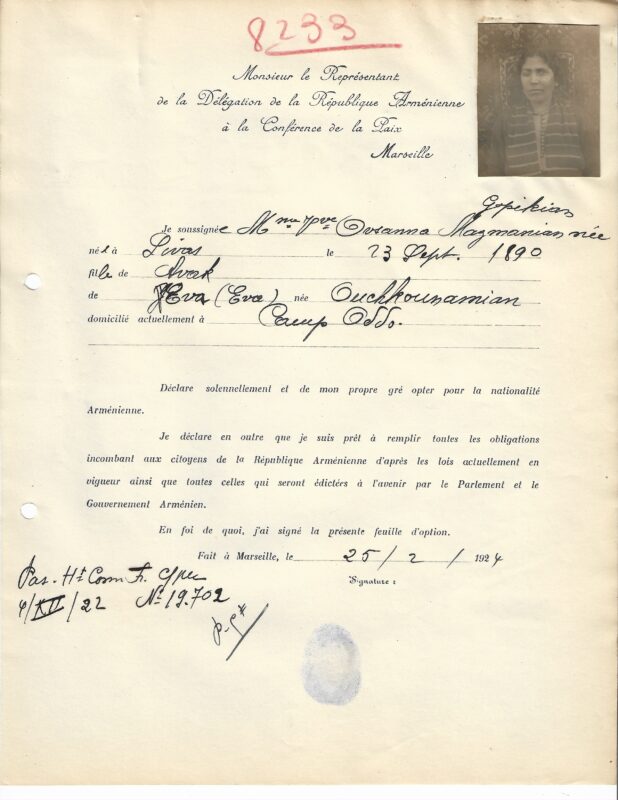 8233
Monsieur le Représentant
de la Délégation de la République Arménienne
à la Conférence de la Paix
Marseille
Gopikian
Je soussignée Mme Vve Ovsanna Mazmanian née
née à Sivas le 23 Sept. 1890
fille de Avak
de Eva (Eve) née Ouchkounamian
domicilié actuellement à Camp Oddo.
Déclare solennellement et de mon propre gré opter pour la nationalité
Arménienne.
Je déclare en outre que je suis prêt à remplir toutes les obligations
incombant aux citoyens de la République Arménienne d'après les lois actuellement en
vigueur ainsi que toutes celles qui seront édictées à l'avenir par le Parlement et le
Gouvernement Arménien.
En foi de quoi, j'ai signé la présente feuille d'option.
Fait à Marseille, le 25/2/1924
Signature :
Pas. Ht Com Fr.
4/XII/22 No 19.702